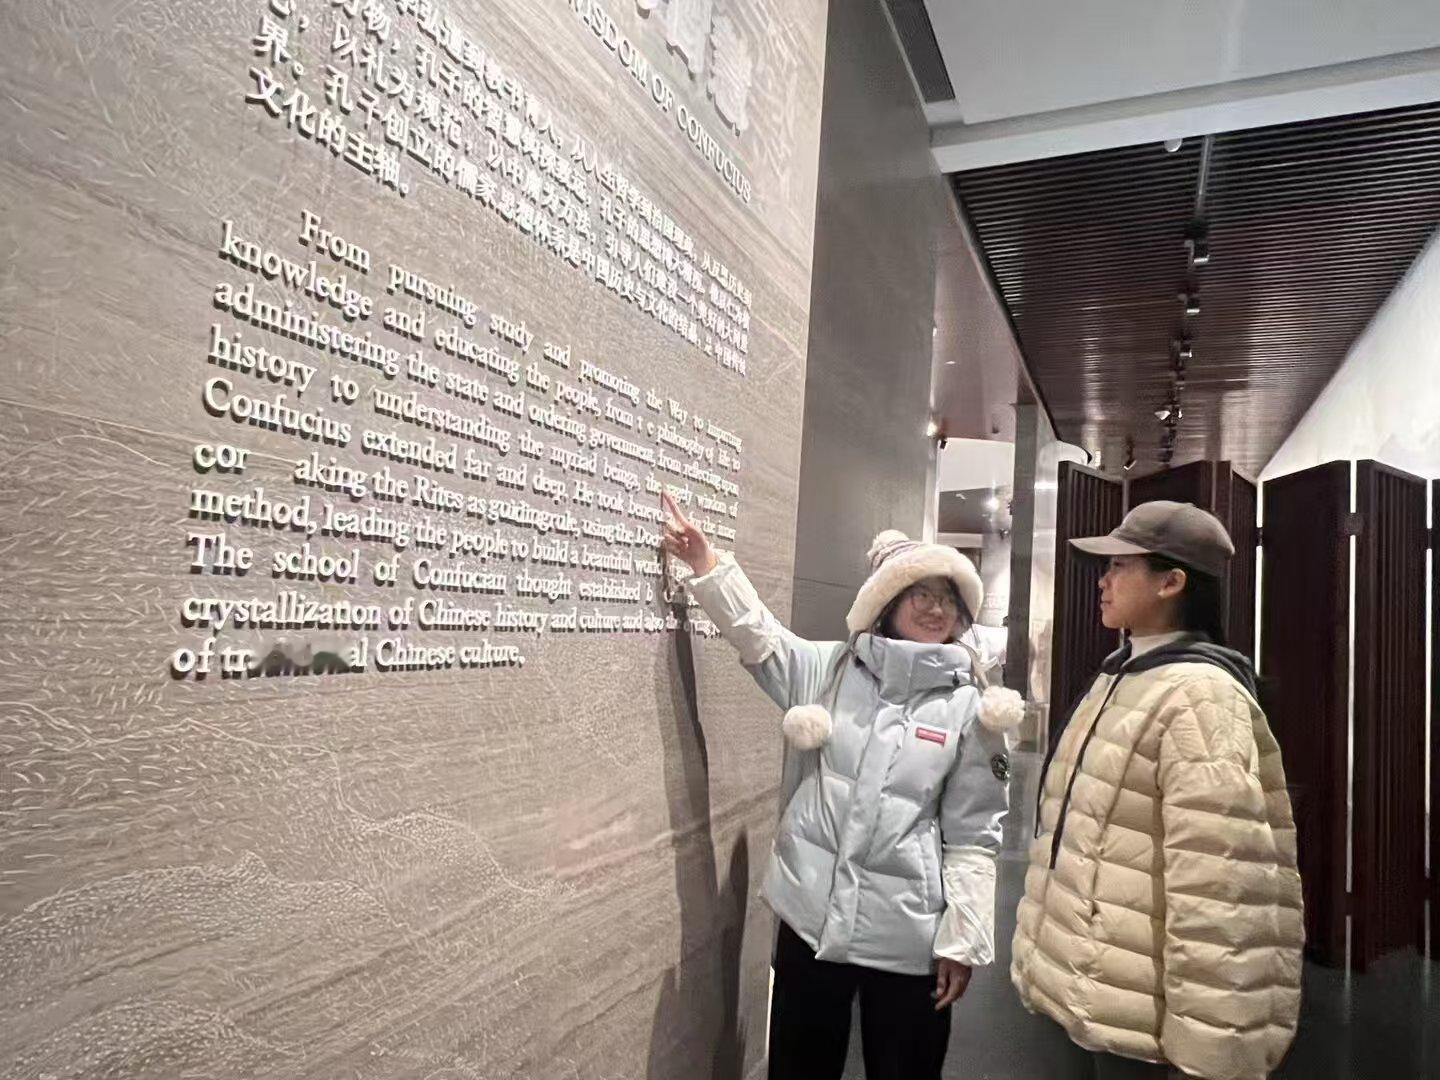 WISDOM OF CONFUCIUS
弘道到教书育人，从人生哲学到治国理政，从反思历史到
万物，孔子的智慧钩深致远。孔子的思想博大精深，他以仁为核
心，以礼为规范，以中庸为方法，引导人们建设一个美好的大同世
界。孔子创立的儒家思想体系是中国历史与文化的结晶，是中国传统
文化的主轴。
From pursuing study and promoting the Way to imparting
knowledge and educating the people, from t e philosophy of life to
administering the state and ordering government, from reflecting upon
history to understanding the myriad beings, the sagely wisdom of
Confucius extended far and deep. He took benevo for the inner
cor aking the Rites as guiding rule, using the Doc
method, leading the people to build a beautiful world of
The school of Confucian thought established b
crystallization of Chinese history and culture and also the
of tr al Chinese culture.